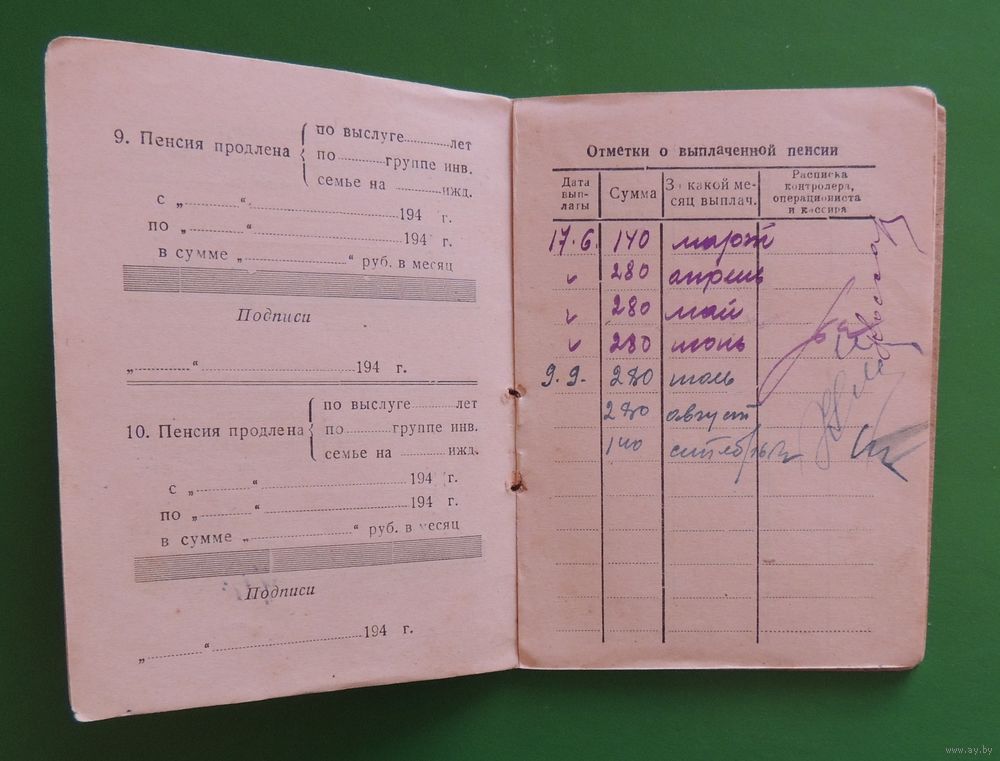 9. Пенсия продлена { по выслуге.........лет
по...........группе инв.
семье на ..........ижд.
с „............“..............................194 г.
по „..........“..............................194 г.
в сумме „......................“ руб. в месяц
Подписи
„..............“..............................194 г.
10. Пенсия продлена { по выслуге..........лет
по...........группе инв.
семье на ..........ижд.
с „............“..............................194 г.
по „..........“..............................194 г.
в сумме „......................“ руб. в месяц
Подписи
„..............“..............................194 г.
Отметки о выплаченной пенсии
Дата выплаты Сумма За какой месяц выплач. Расписка контролера, операциониста и кассира
17.6. 140 март
" 280 апрель
" 280 май
" 280 июнь
9.9. 280 июль
280 август
140 сентябрь
www.ay.by